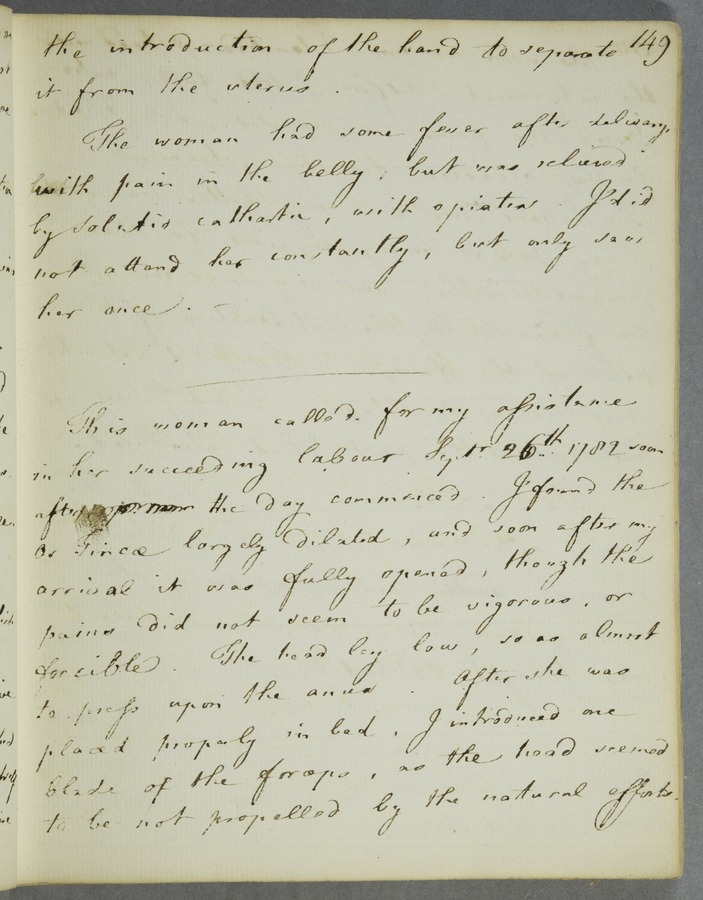 149
the introduction of the hand to separate
it from the uterus .
The woman had some fever after delivery,
with pain in the belly ; but was relieved
by Solutio cathartic , with opiates . I did
not attend her constantly , but only saw
her once . -
This woman called for my assistance
in her succeeding labour Sept.r 26th 1782 soon
after the day commenced . I found the
Os Tincæ largely dilated , and soon after my
arrival it was fully opened , though the
pains did not seem to be vigorous , or
forcible . The head lay low , so as almost
to press upon the anus . After she was
placed properly in bed , I introduced one
blade of the forceps , as the head seemed
to be not propelled by the natural efforts.